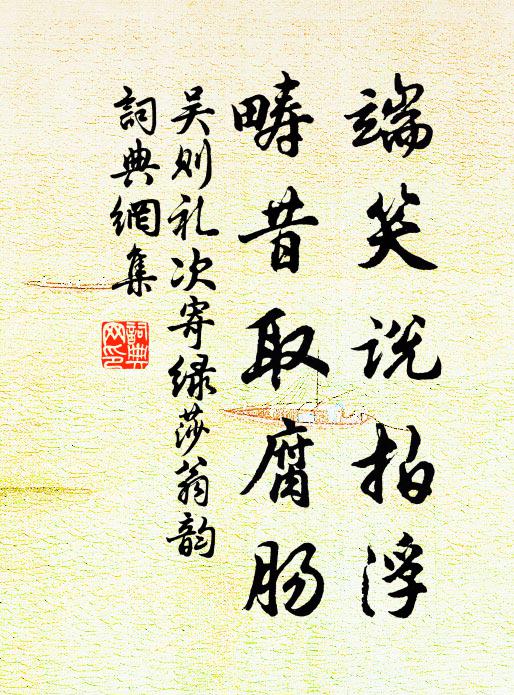 端笑说拍浮
畴昔取腐肠
吴则礼次寄绿莎翁韵
詞典網集
詞典网印